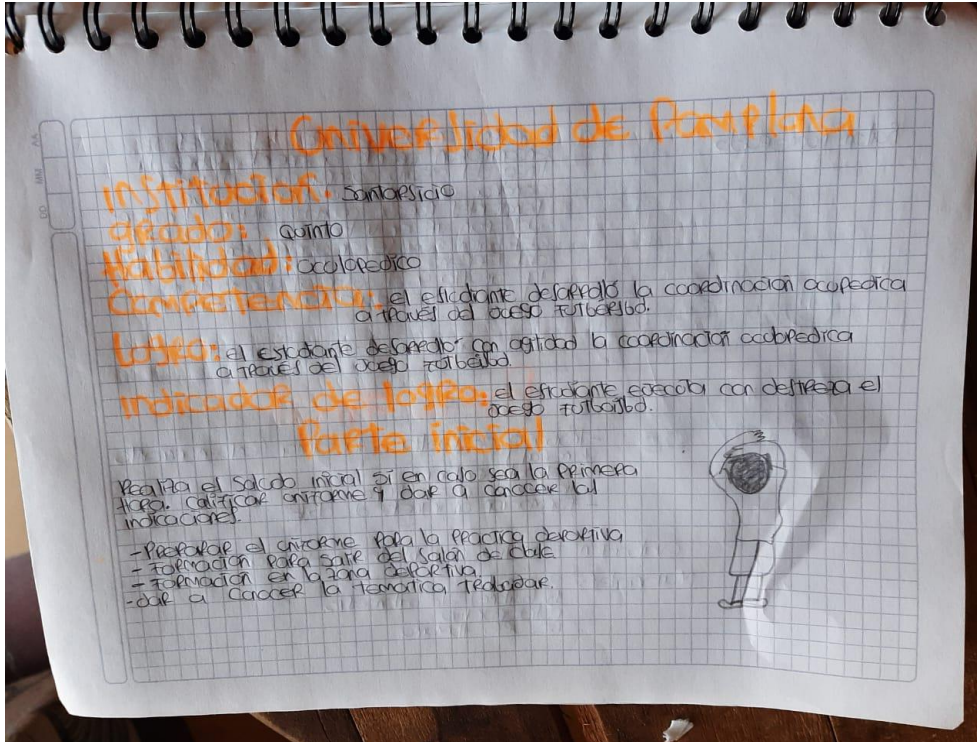 Universidad de Pamplona
institucion: Santapsicio
grado: Quinto
Habilidad: ocolopedico
Competencia: el estudiante desarrollo la coordinacion ocupedica
a traves del juego futbeisbol.
Logro: el estudiante desarrollor con agilidad la coordinacion ocolopedica
a traves del juego futbeisbol.
indicador de logro: el estudiante ejecuta con destreza el
juego futbeisbol.
Parte inicial
Realiza el saludo inicial si en caso sea la primera
Hora. calificar uniforme y dar a conocer las
indicaciones.
- Preparar el uniforme para la practica deportiva
- Formacion para salir del salón de clase
- Formacion en la zona deportiva
- dar a conocer la tematica trabajar.
AA
MM
DD